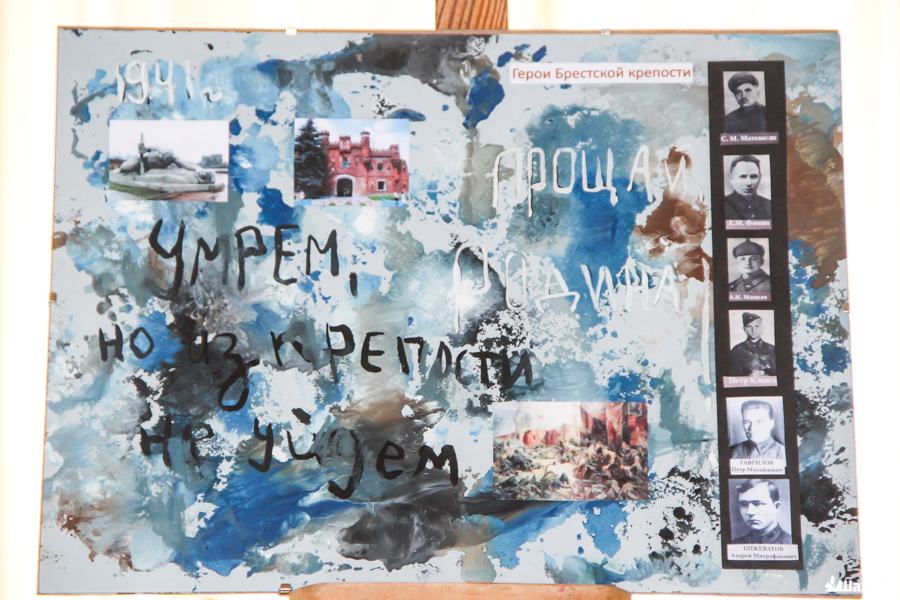 1941г
Герои Брестской крепости
ПРОЩАЙ,
РОДИНА!
УМРЕМ,
но из кРЕПОСТИ
не уйдем
С. М. Матевосян
Е.М. Фомин
Петр Клыпа
ГАВРИЛОВ
Петр Михайлович
КИЖЕВАТОВ
Андрей Митрофанович